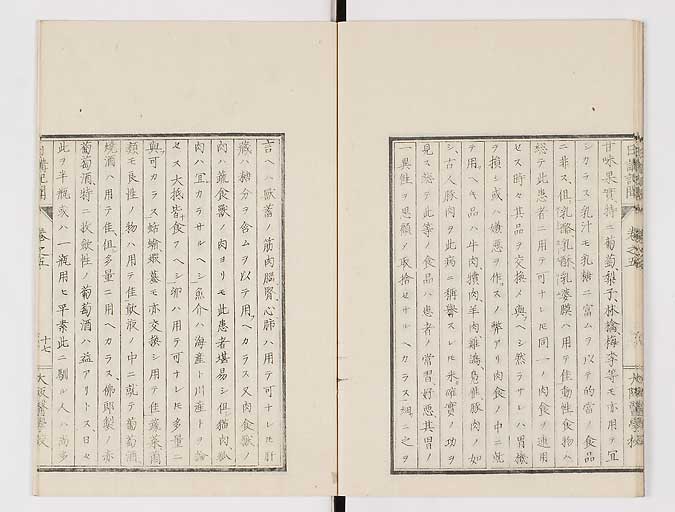 甘味果實特ニ葡萄、梨子、林檎、梅、李等モ亦用テ宜
カラス乳汁モ乳糖ニ富ムヲ以テ的當ノ食品
ニ非ス、但乳酪乳酥乳婆膜ハ用テ佳動性食物ハ
総テ此患者ニ用テ可ナレ𪜈同一ノ肉食ヲ連用
セス時々其品ヲ交換ノ與ヘシ然ラサレハ胃機
ヲ損シ或ハ嫌惡ヲ作スノ弊アリ肉食ノ中ニ就
テ用ヘキ品ハ牛肉、犢肉、羊肉、雞、鴻、鳧雉豚肉ノ如
シ、古人豚肉ヲ此病ニ稱譽スレ𪜈未確實ノ功ヲ
見ス総テ此等ノ食品ハ患者ノ嘗習、好惡其胃ノ
一異性ヲ思顧ノ取捨セサルヘカラス、細ニ之ヲ
言ヘハ獸畜ノ筋肉腦腎、心肺ハ用テ可ナレ𪜈肝
藏ハ糖分ヲ含ムヲ以テ用ヘカラス又肉食獸ノ
肉ハ蔬食獸ノ肉ヨリモ此患者堪易シ但猫肉狐
肉ハ宜カラサルヘシ魚介ハ海産ト川産トヲ論
セス大抵皆食フヘシ卵ハ用テ可ナレ𪜈多量ニ
與可カラス蛞蝓蝦蟇モ亦交換シ用テ佳
類モ良性ノ物ハ用テ佳飲液ノ中ニ就テ葡萄酒
燒酒ハ用テ佳、但多量ニ用ヘカラス、佛郎製ノ赤
葡萄酒、特ニ收斂性ノ葡萄酒ハ益アリトス日々
此ヲ半瓶或ハ一瓶用ヒ平素此ニ馴ル人ハ尚多
日講記聞 卷之五 十七 大阪醫學校